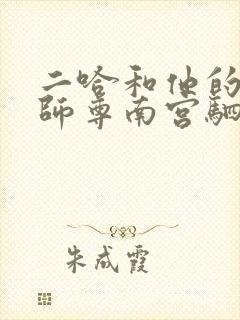 二哈和他的
师尊南宫驷
朱成霞